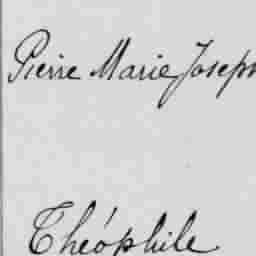 Pierre Marie Joseph
Théophile